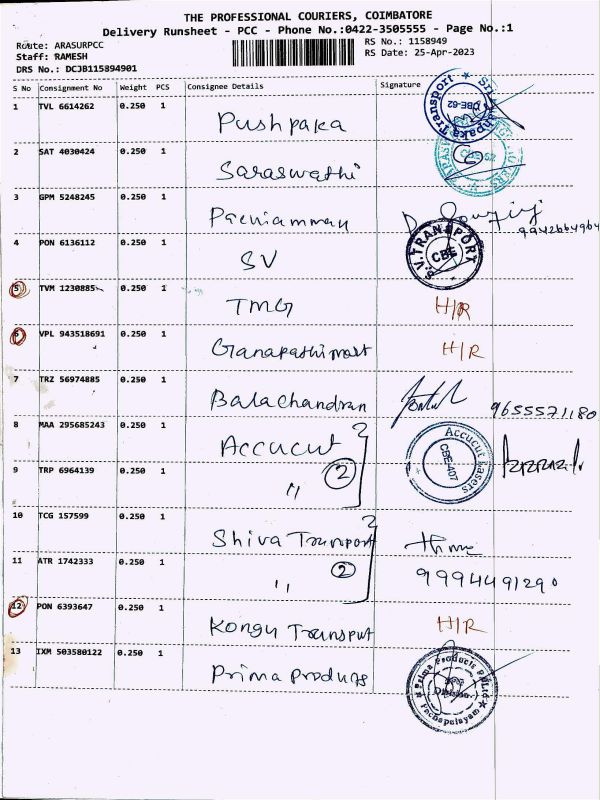 THE PROFESSIONAL COURIERS, COIMBATORE
Delivery Runsheet - PCC - Phone No.:0422-3505555 - Page No.:1
Route: ARASURPCC RS No.: 1158949
Staff: RAMESH RS Date: 25-Apr-2023
DRS No.: DCJB115894901
S No Consignment No Weight PCS Consignee Details Signature
1 TVL 6614262 0.250 1 Pushpaka
CBE-62
2 SAT 4030424 0.250 1 Saraswathi
3 GPM 5248245 0.250 1
4 PON 6136112 0.250 1 SV S.V.TRANSPORT CBE
5 TVM 1230885 0.250 1 TMG H/R
6 VPL 943518691 0.250 1 H/R
7 TRZ 56974885 0.250 1 Balachandran 9655571180
8 MAA 295685243 0.250 1 Accucut Accucut Lasers CBE-407
9 TRP 6964139 0.250 1 " 2
10 TCG 157599 0.250 1 Shiva Transport
11 ATR 1742333 0.250 1 " 2 9994491290
12 PON 6393647 0.250 1 Kongu Transput H/R
13 IXM 503580122 0.250 1 Prima
Prima Products Pachapalayam